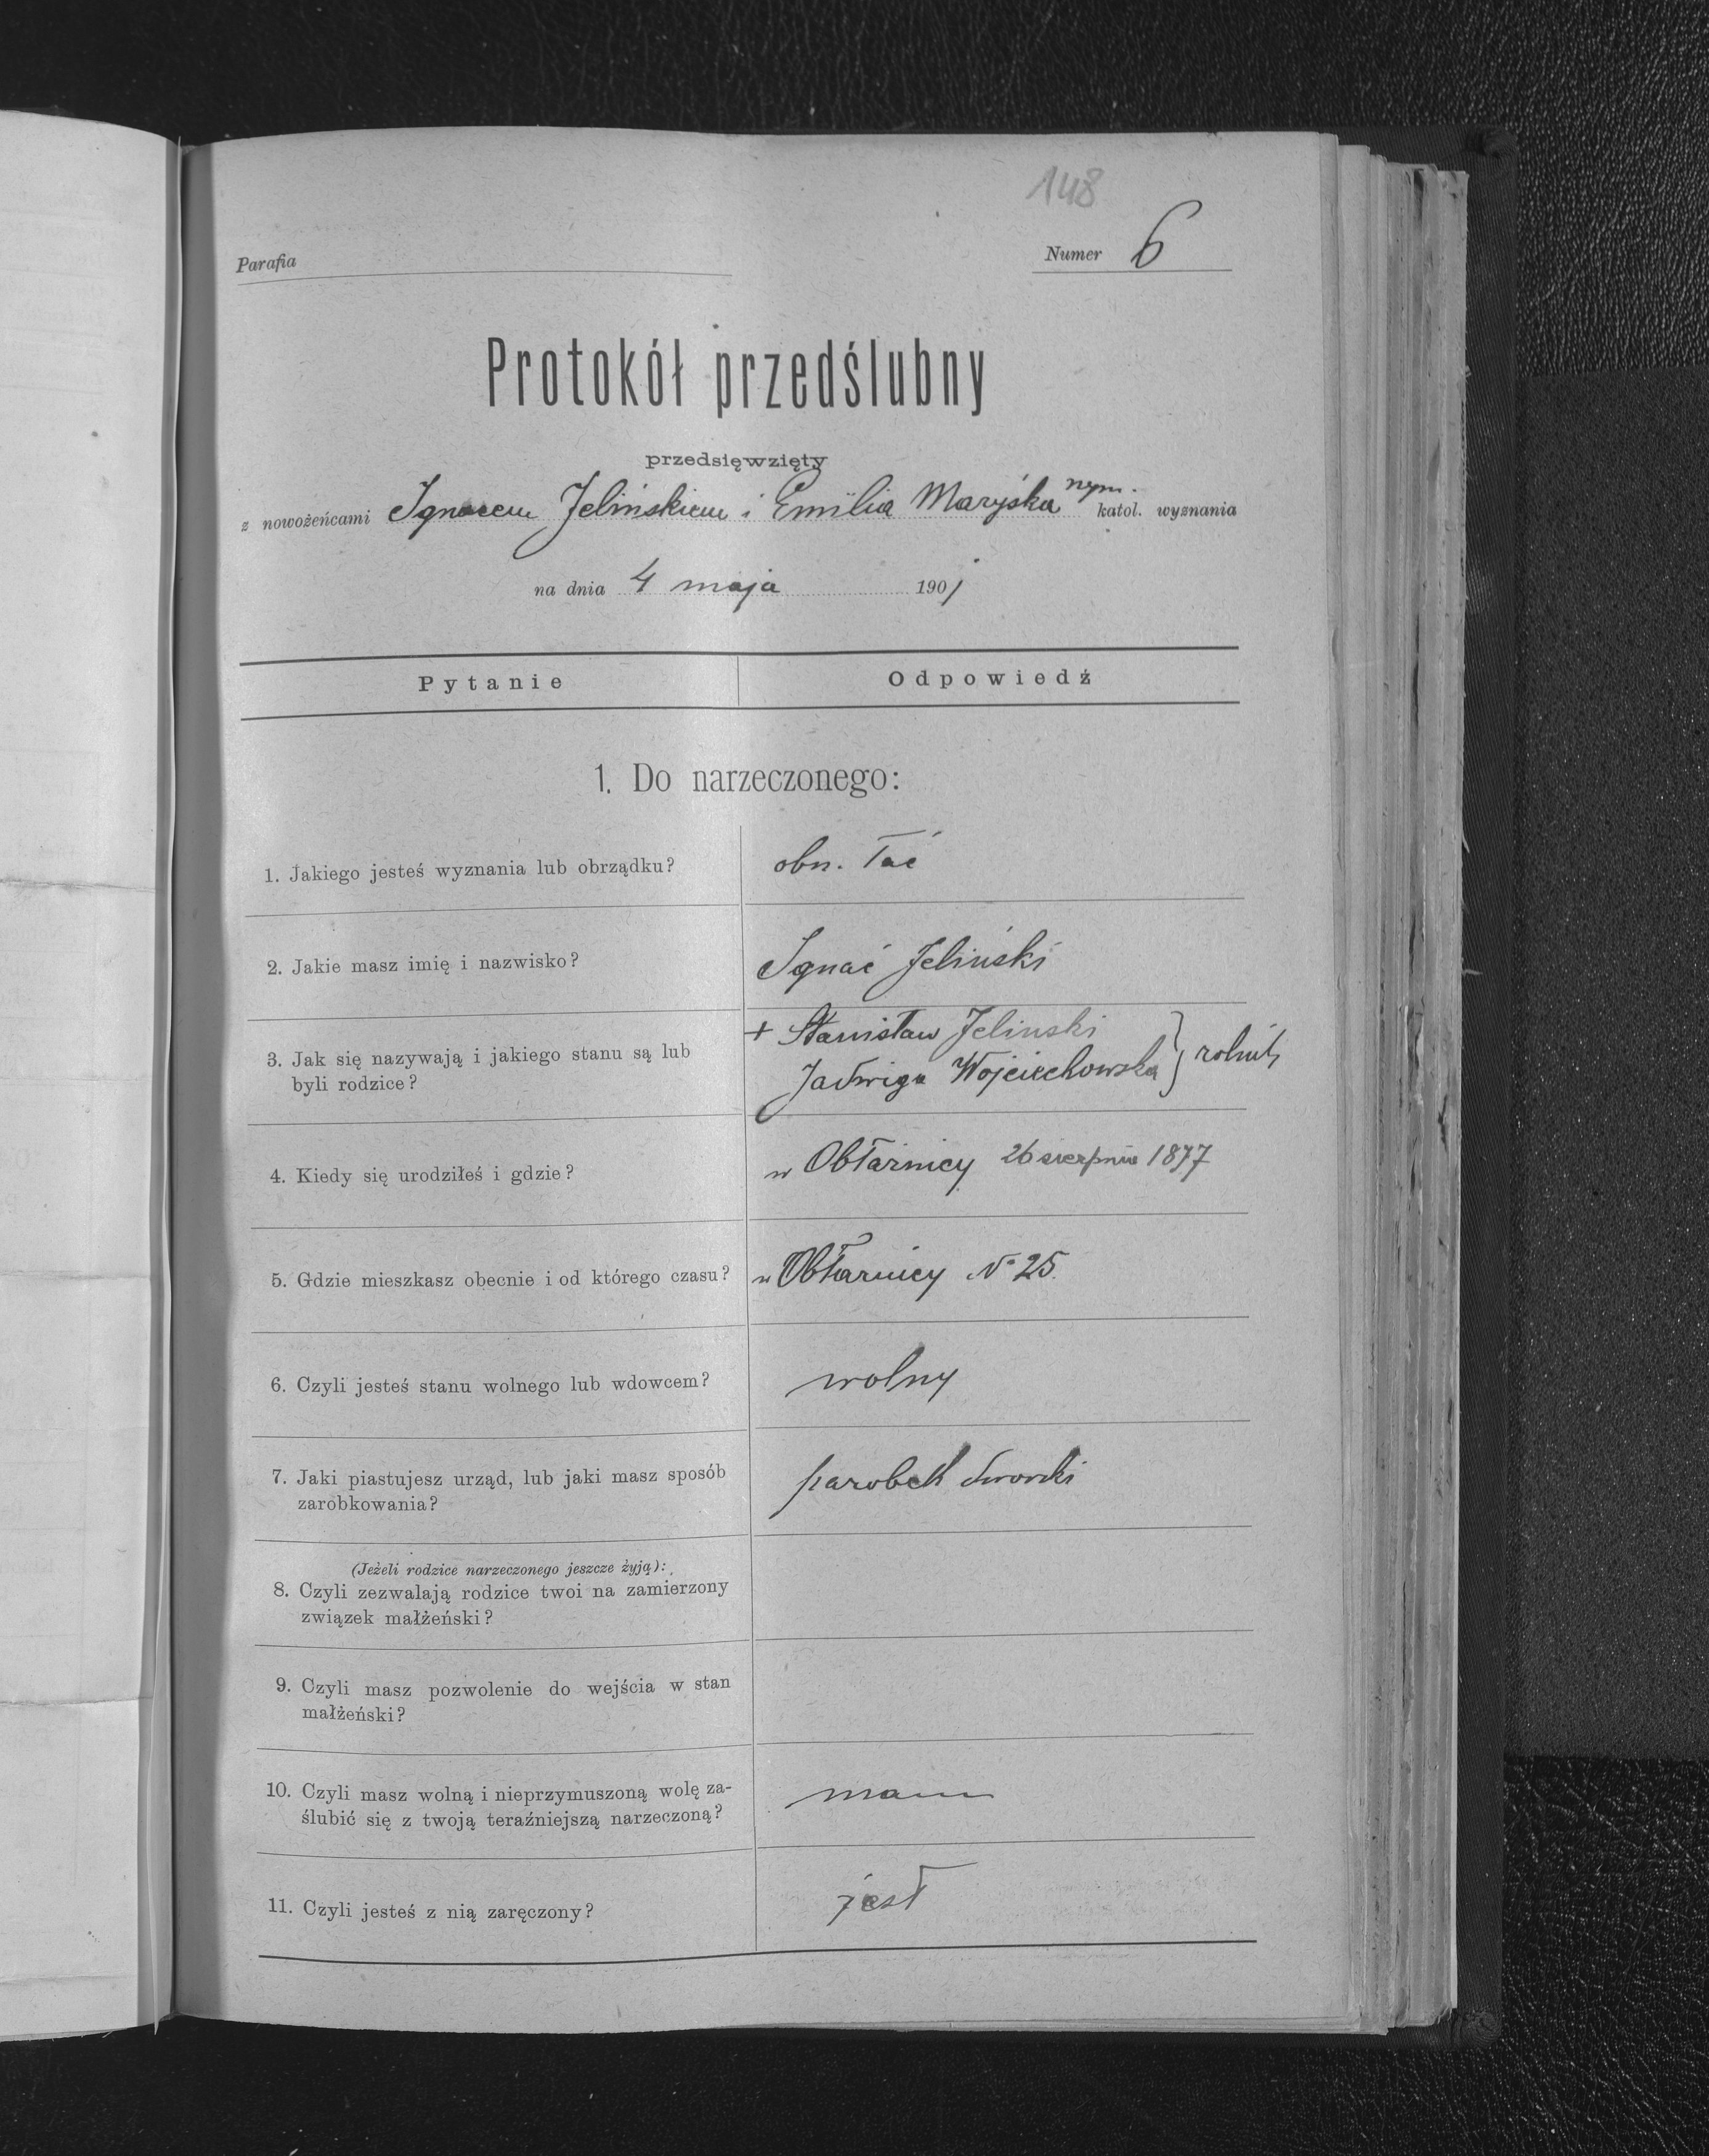 148
Parafia
Numer 6
Protokół przedślubny
przedsięwzięty
z nowożeńcami Ignacem Jelińskiem i Emilia Maryśka rzym. katol. wyznania
na dnia 4 maja 1901
Pytanie Odpowiedź
1. Do narzeczonego:
1. Jakiego jesteś wyznania lub obrządku? obrz. łać
2. Jakie masz imię i nazwisko? Ignać Jeliński
3. Jak się nazywają i jakiego stanu są lub + Stanisław Jelinski
byli rodzice? Jadwiga Wojciechowska } rolnik
4. Kiedy się urodziłeś i gdzie? w Obłaźnicy 26 sierpnia 1877
5. Gdzie mieszkasz obecnie i od którego czasu? w Obłaźnicy No 25.
6. Czyli jesteś stanu wolnego lub wdowcem? wolny
7. Jaki piastujesz urząd, lub jaki masz sposób
zarobkowania? parobek dworski
(Jeżeli rodzice narzeczonego jeszcze żyją):
8. Czyli zezwalają rodzice twoi na zamierzony
związek małżeński?
9. Czyli masz pozwolenie do wejścia w stan
małżeński?
10. Czyli masz wolną i nieprzymuszoną wolę za-
ślubić się z twoją teraźniejszą narzeczoną? mam
11. Czyli jesteś z nią zaręczony? jest